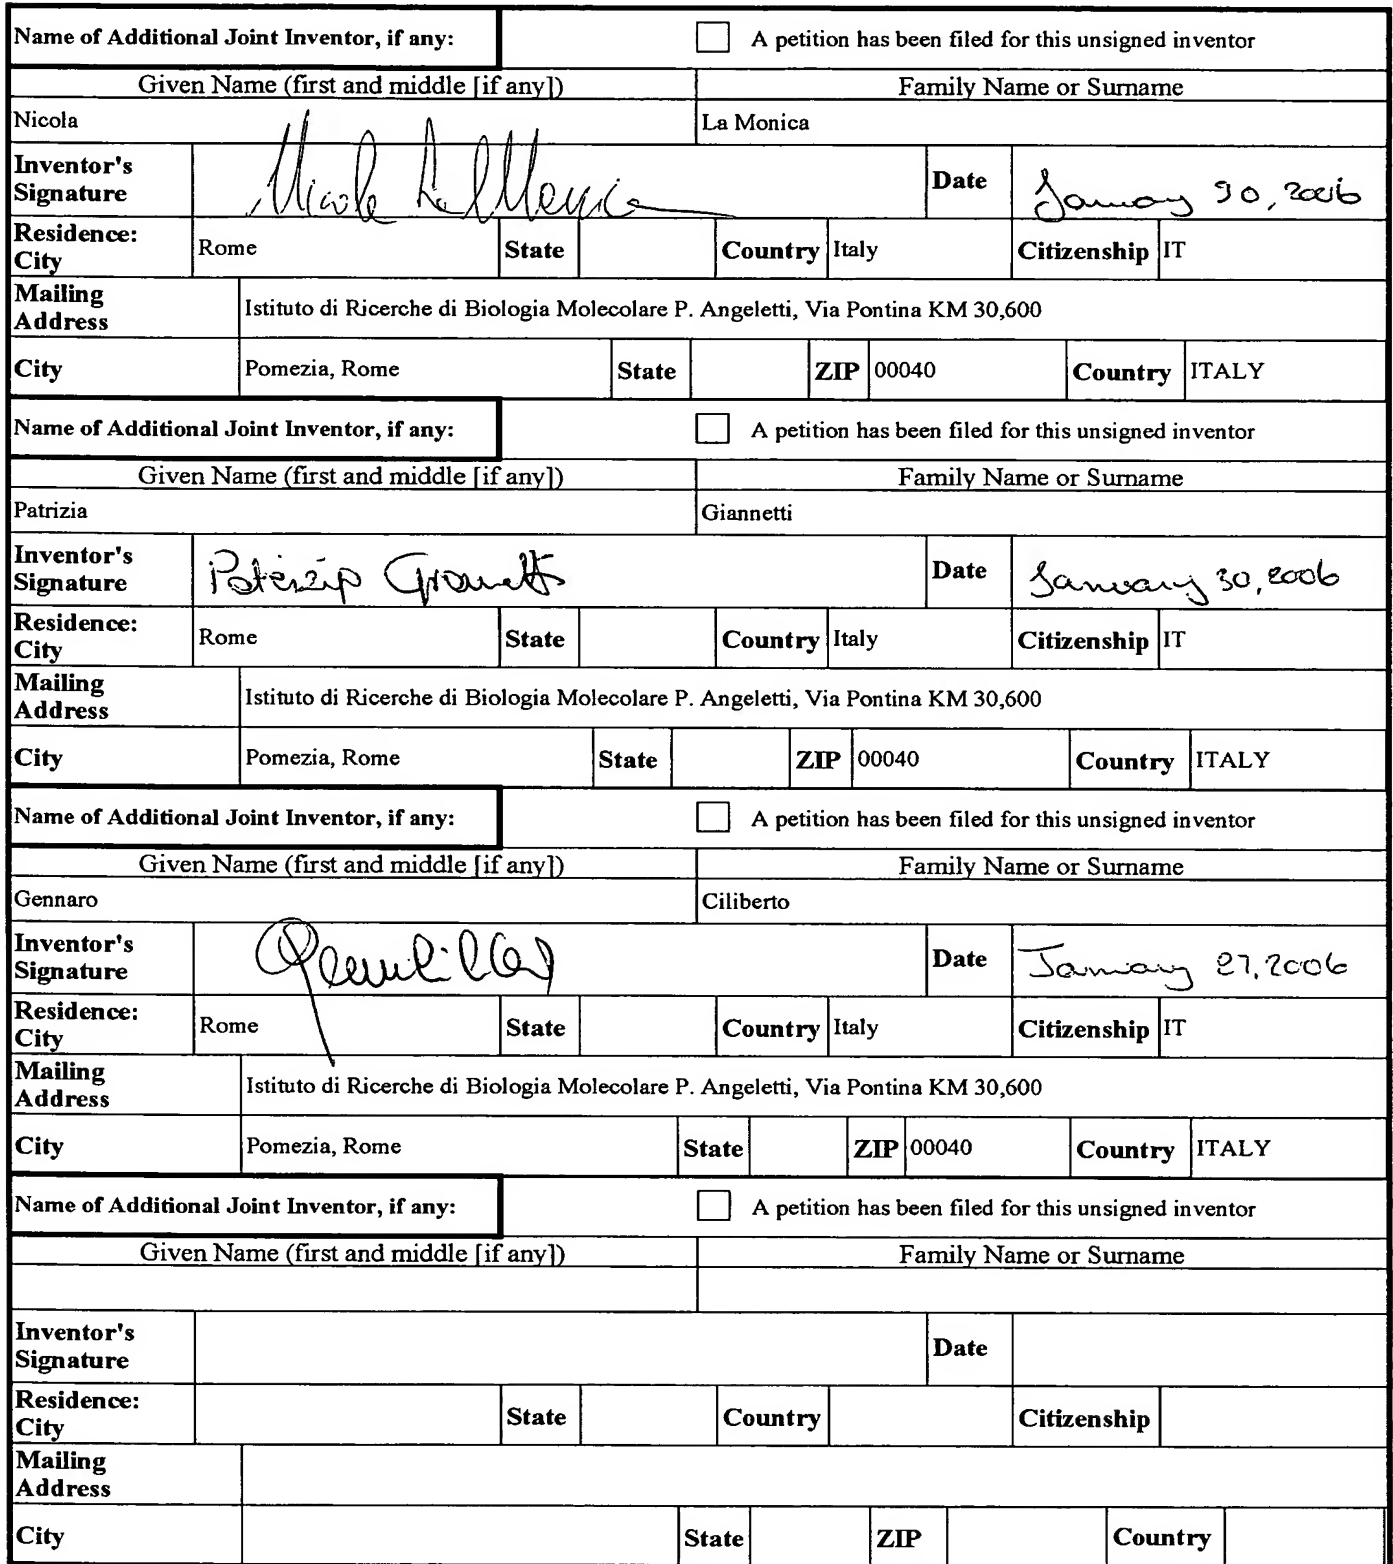 Name of Additional Joint Inventor, if any: A petition has been filed for this unsigned inventor
Given Name (first and middle [if any]) Family Name or Surname
Nicola La Monica
Inventor's Signature Nicola La Monica Date January 30, 2006
Residence: City Rome State Country Italy Citizenship IT
Mailing Address Istituto di Ricerche di Biologia Molecolare P. Angeletti, Via Pontina KM 30,600
City Pomezia, Rome State ZIP 00040 Country ITALY
Name of Additional Joint Inventor, if any: A petition has been filed for this unsigned inventor
Given Name (first and middle [if any]) Family Name or Surname
Patrizia Giannetti
Inventor's Signature Patrizia Giannetti Date January 30, 2006
Residence: City Rome State Country Italy Citizenship IT
Mailing Address Istituto di Ricerche di Biologia Molecolare P. Angeletti, Via Pontina KM 30,600
City Pomezia, Rome State ZIP 00040 Country ITALY
Name of Additional Joint Inventor, if any: A petition has been filed for this unsigned inventor
Given Name (first and middle [if any]) Family Name or Surname
Gennaro Ciliberto
Inventor's Signature Date January 27, 2006
Residence: City Rome State Country Italy Citizenship IT
Mailing Address Istituto di Ricerche di Biologia Molecolare P. Angeletti, Via Pontina KM 30,600
City Pomezia, Rome State ZIP 00040 Country ITALY
Name of Additional Joint Inventor, if any: A petition has been filed for this unsigned inventor
Given Name (first and middle [if any]) Family Name or Surname
Inventor's Signature Date
Residence: City State Country Citizenship
Mailing Address
City State ZIP Country